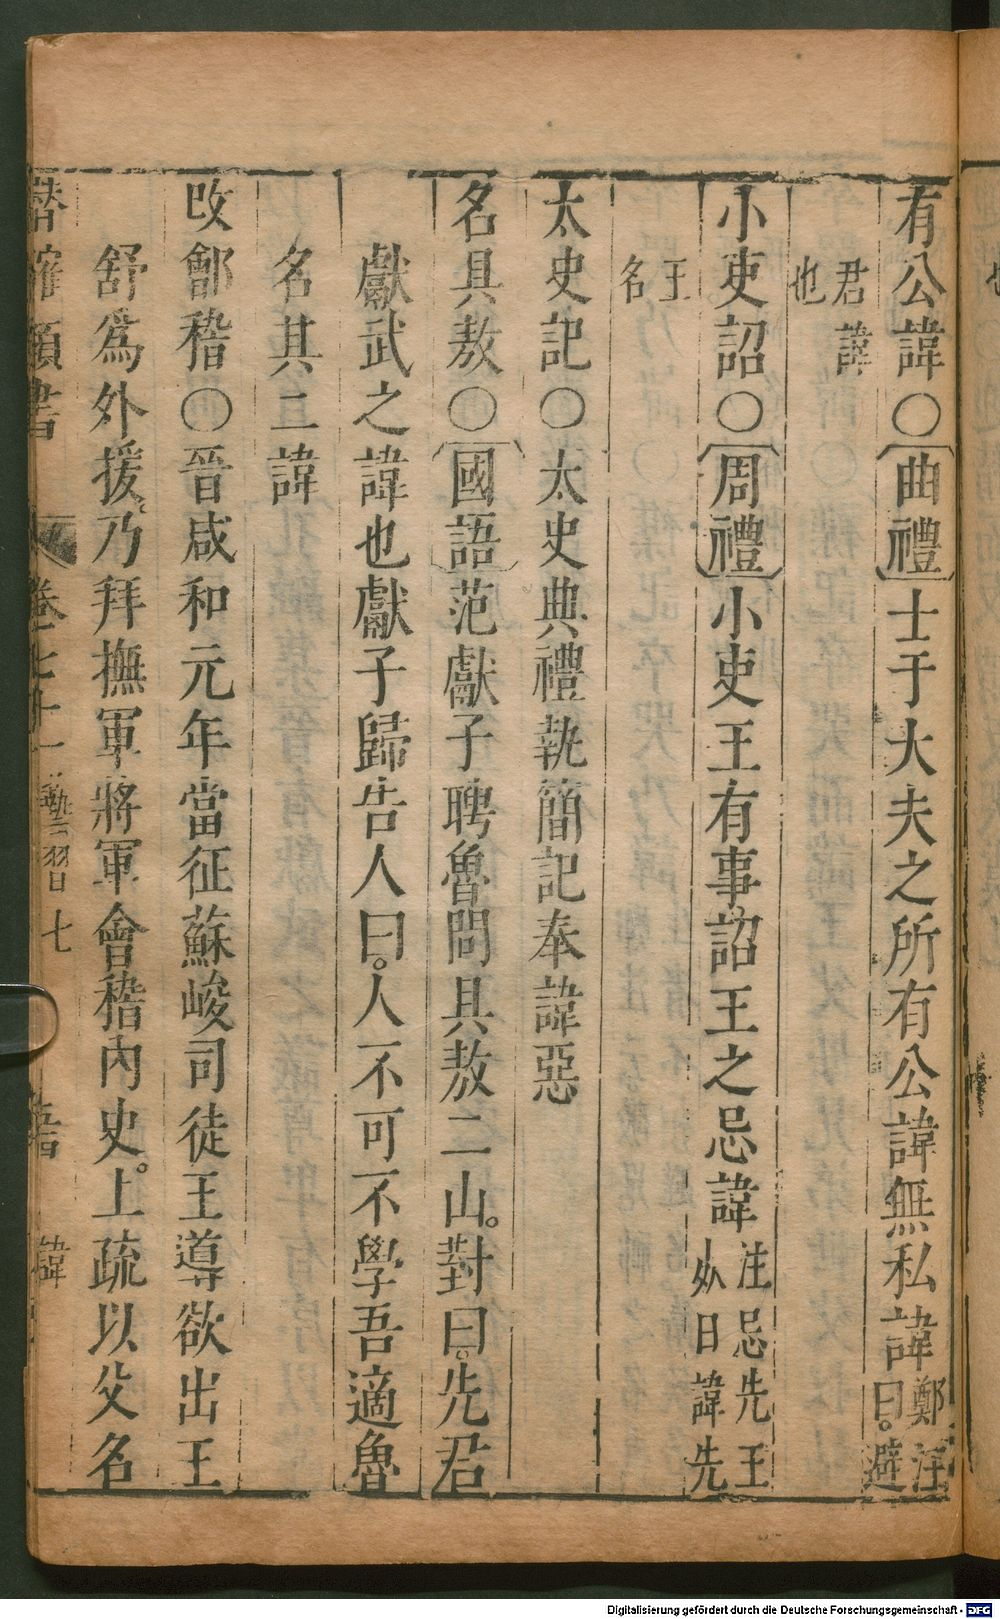 有公諱○曲禮士于大夫之所有公諱無私諱鄭注曰。避
君諱也
小吏詔○周禮小吏王有事詔王之忌諱注忌先王𣦸日諱先
王名
太史記○太史典禮執簡記奉諱惡
名具敖○國語范獻子聘魯問具敖二山。對曰。先君
獻武之諱也獻子歸告人曰。人不可不學吾適魯
名其二諱
改鄶稽○晉咸和元年當征蘇峻司徒王導欲出王
舒爲外援。乃拜撫軍將軍會稽內史。上疏以父名
潛確類書 卷七十一 藝習七 諱
Digitalisierung gefördert durch die Deutsche Forschungsgemeinschaft - DFG